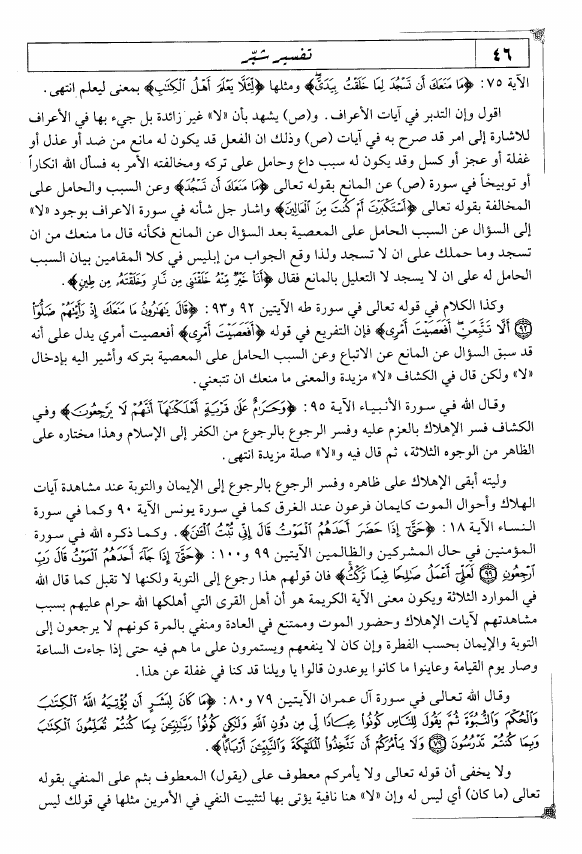 ٤٦
تفسير شبّر
الآية ٧٥: ﴿مَا مَنَعَكَ أَن تَسْجُدَ لِمَا خَلَقْتُ بِيَدَيَّ﴾ ومثلها ﴿لِئَلَّا يَعْلَمَ أَهْلُ الْكِتَابِ﴾ بمعنى ليعلم انتهى.
اقول وإن التدبر في آيات الأعراف. و(ص) يشهد بأن «لا» غير زائدة بل جيء بها في الأعراف
للاشارة إلى امر قد صرح به في آيات (ص) وذلك ان الفعل قد يكون له مانع من ضد أو عذل أو
غفلة أو عجز أو كسل وقد يكون له سبب داع وحامل على تركه ومخالفته الأمر به فسأل الله انكاراً
أو توبيخاً في سورة (ص) عن المانع بقوله تعالى ﴿مَا مَنَعَكَ أَن تَسْجُدَ﴾ وعن السبب والحامل على
المخالفة بقوله تعالى ﴿أَسْتَكْبَرْتَ أَمْ كُنتَ مِنَ الْعَالِينَ﴾ واشار جل شأنه في سورة الاعراف بوجود «لا»
إلى السؤال عن السبب الحامل على المعصية بعد السؤال عن المانع فكأنه قال ما منعك من ان
تسجد وما حملك على ان لا تسجد ولذا وقع الجواب من إبليس في كلا المقامين ببيان السبب
الحامل له على ان لا يسجد لا التعليل بالمانع فقال ﴿أَنَا خَيْرٌ مِنْهُ خَلَقْتَنِي مِن نَّارٍ وَخَلَقْتَهُ مِن طِينٍ﴾.
وكذا الكلام في قوله تعالى في سورة طه الآيتين ٩٢ و٩٣: ﴿قَالَ يَهَارُونُ مَا مَنَعَكَ إِذْ رَأَيْتَهُمْ ضَلُّوا
﴿٩٢﴾ أَلَّا تَتَّبِعَنِ أَفَعَصَيْتَ أَمْرِي﴾ فإن التفريع في قوله ﴿أَفَعَصَيْتَ أَمْرِي﴾ أفعصيت أمري يدل على أنه
قد سبق السؤال عن المانع عن الاتباع وعن السبب الحامل على المعصية بتركه وأشير اليه بإدخال
«لا» ولكن قال في الكشاف «لا» مزيدة والمعنى ما منعك ان تتبعني.
وقـال الله في سورة الأنبـيـاء الآية ٩٥: ﴿وَحَرَامٌ عَلَى قَرْيَةٍ أَهْلَكْنَاهَا أَنَّهُمْ لَا يَرْجِعُونَ﴾ وفي
الكشاف فسر الإهلاك بالعزم عليه وفسر الرجوع بالرجوع من الكفر إلى الإسلام وهذا مختاره على
الظاهر من الوجوه الثلاثة، ثم قال فيه و«لا» صلة مزيدة انتهى.
وليته أبقى الإهلاك على ظاهره وفسر الرجوع بالرجوع إلى الإيمان والتوبة عند مشاهدة آيات
الهلاك وأحوال الموت كايمان فرعون عند الغرق كما في سورة يونس الآية ٩٠ وكما في سورة
النسـاء الآية ١٨: ﴿حَتَّى إِذَا حَضَرَ أَحَدَهُمُ الْمَوْتُ قَالَ إِنِّي تُبْتُ الْآنَ﴾. وكـمـا ذكـره الله في سـورة
المؤمنين في حال المشركين والظالمين الآيتين ٩٩ و١٠٠: ﴿حَتَّى إِذَا جَاءَ أَحَدَهُمُ الْمَوْتُ قَالَ رَبِّ
ارْجِعُونِ ﴿٩٩﴾ لَعَلِّي أَعْمَلُ صَالِحًا فِيمَا تَرَكْتُ﴾ فان قولهم هذا رجوع إلى التوبة ولكنها لا تقبل كما قال الله
في الموارد الثلاثة ويكون معنى الآية الكريمة هو أن أهل القرى التي أهلكها الله حرام عليهم بسبب
مشاهدتهم لآيات الإهلاك وحضور الموت وممتنع في العادة ومنفي بالمرة كونهم لا يرجعون إلى
التوبة والإيمان بحسب الفطرة وإن كان لا ينفعهم ويستمرون على ما هم فيه حتى إذا جاءت الساعة
وصار يوم القيامة وعاينوا ما كانوا يوعدون قالوا يا ويلنا قد كنا في غفلة عن هذا.
وقـال الله تعـالى في سورة آل عمران الآيتين ٧٩ و٨٠: ﴿مَا كَانَ لِبَشَرٍ أَن يُؤْتِيَهُ اللَّهُ الْكِتَابَ
وَالْحُكْمَ وَالنُّبُوَّةَ ثُمَّ يَقُولَ لِلنَّاسِ كُونُوا عِبَادًا لِّي مِن دُونِ اللَّهِ وَلَكِن كُونُوا رَبَّانِيِّنَ بِمَا كُنتُمْ تُعَلِّمُونَ الْكِتَابَ
وَبِمَا كُنتُمْ تَدْرُسُونَ ﴿٧٩﴾ وَلَا يَأْمُرَكُمْ أَن تَتَّخِذُوا الْمَلَائِكَةَ وَالنَّبِيِّنَ أَرْبَابًا﴾.
ولا يخفى أن قوله تعالى ولا يأمركم معطوف على (يقول) المعطوف بثم على المنفي بقوله
تعالى (ما كان) أي ليس له وإن «لا» هنا نافية يؤتى بها لتثبيت النفي في الأمرين مثلها في قولك ليس